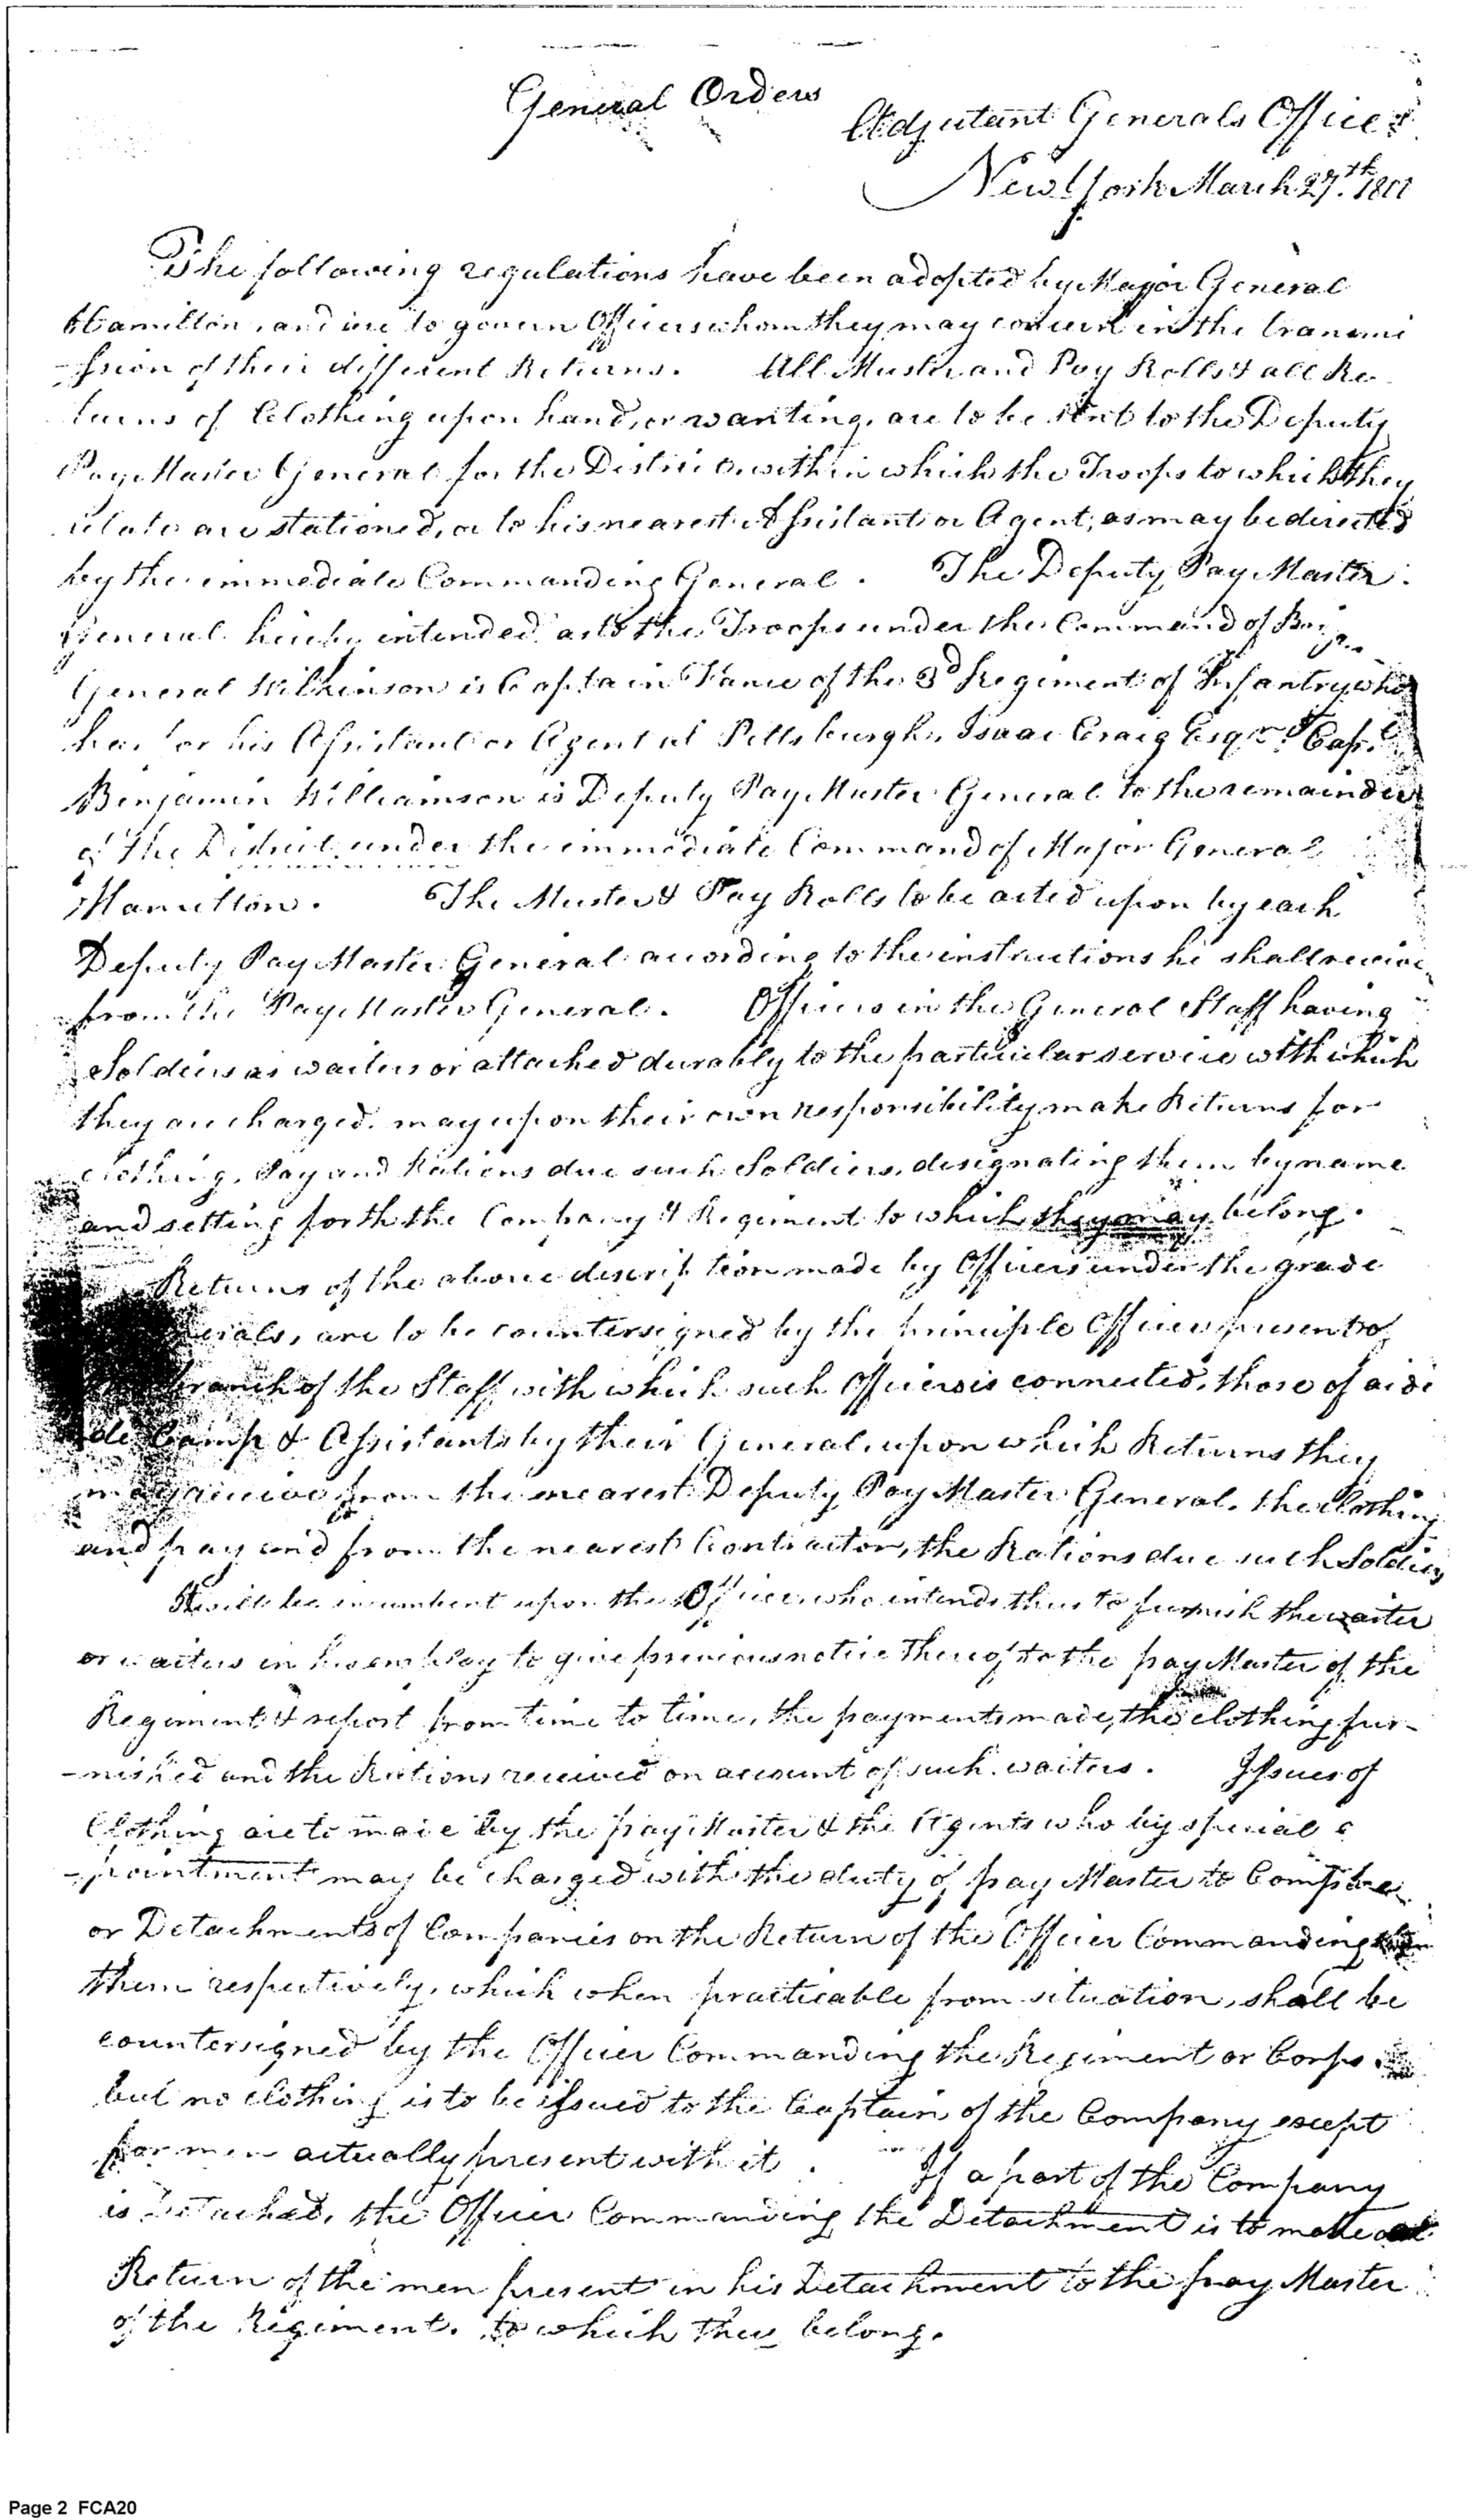 General Orders
Adjutant Generals Office
New York March 27.th
The following regulations have been adopted by Major General
Hamilton, and are to govern Officers whom they may concern in the transmi
-ssion of their different Returns. All Muster and Pay Rolls & all Re
turns of Clothing upon hand, or wanting, are to be sent to the Deputy
Pay Master General for the District within which the Troops to which they
relate are stationed, or to his nearest Assistant or Agent, as may be directed
by the immediate Commanding General. The Deputy Pay Master
General hereby intended as to the Troops under the Command of Brig
General Wilkinson is Captain Vance of the 3d Regiment of Infantry, who
has for his Assistant or Agent at Pittsburgh, Isaac Craig Esqr. Capt.
Benjamin Williamson is Deputy Pay Master General to the remainder
of the District under the immediate Command of Major General
Hamilton. The Muster & Pay Rolls to be acted upon by each
Deputy Pay Master General according to the instructions he shall receive
from the Pay Master General. Officers in the General Staff having
Soldiers as waiters or attached durably to the particular service with which
they are charged. may upon their own responsibility make Returns for
clothing, Pay and Rations due such Soldiers, designating them by name
and setting forth the Company & Regiment to which they may belong.
Returns of the above description made by Officers under the grade
erals, are to be countersigned by the principle Officer present of
branch of the Staff with which such Officer is connected, those of aide
de Camp & Assistants by their General, upon which Returns they
may receive from the nearest Deputy Pay Master General, the clothing
and pay and from the nearest Contractor, the Rations due such Soldiers
It will be incumbent upon the Officer who intends thus to furnish the waiter
or waiters in his employ to give previous notice thereof to the pay Master of the
Regiment & report from time to time, the payments made, the clothing fur-
-nished and the Rations received on account of such waiters. Issues of
Clothing are to made by the pay Master & the Agents who by special a
-pointment may be charged with the duty of pay Master to Companies
or Detachments of Companies on the Return of the Officer Commanding
them respectively, which when practicable from situation, shall be
countersigned by the Officer Commanding the Regiment or Corps.
but no clothing is to be issued to the Captain of the Company except
for men actually present with it. If a part of the Company
is Detached, the Officer Commanding the Detachment is to make a
Return of the men present in his Detachment to the pay Master
of the Regiment. to which they belong.
Page 2 FCA20